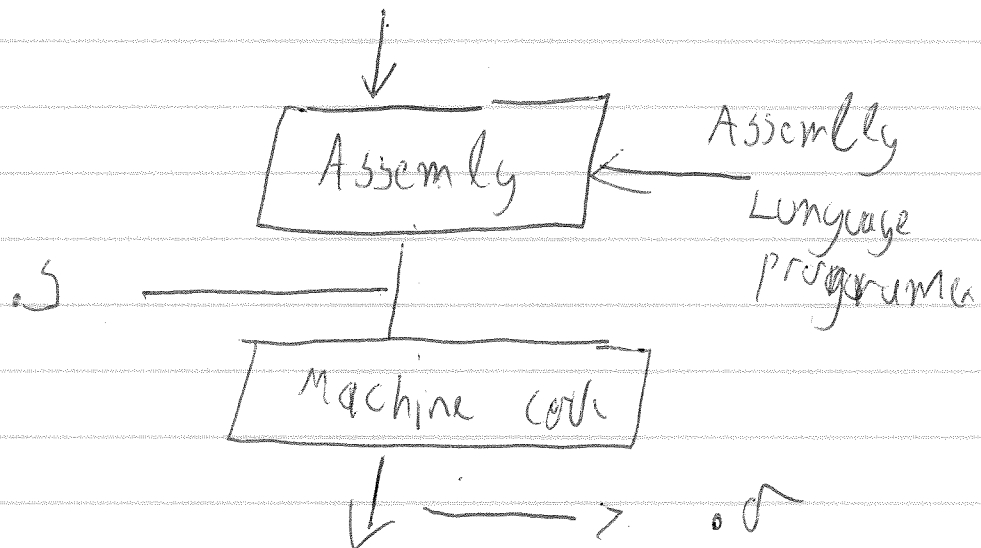 Assembly
Assembly
Language
programmer
.S
Machine code
.o